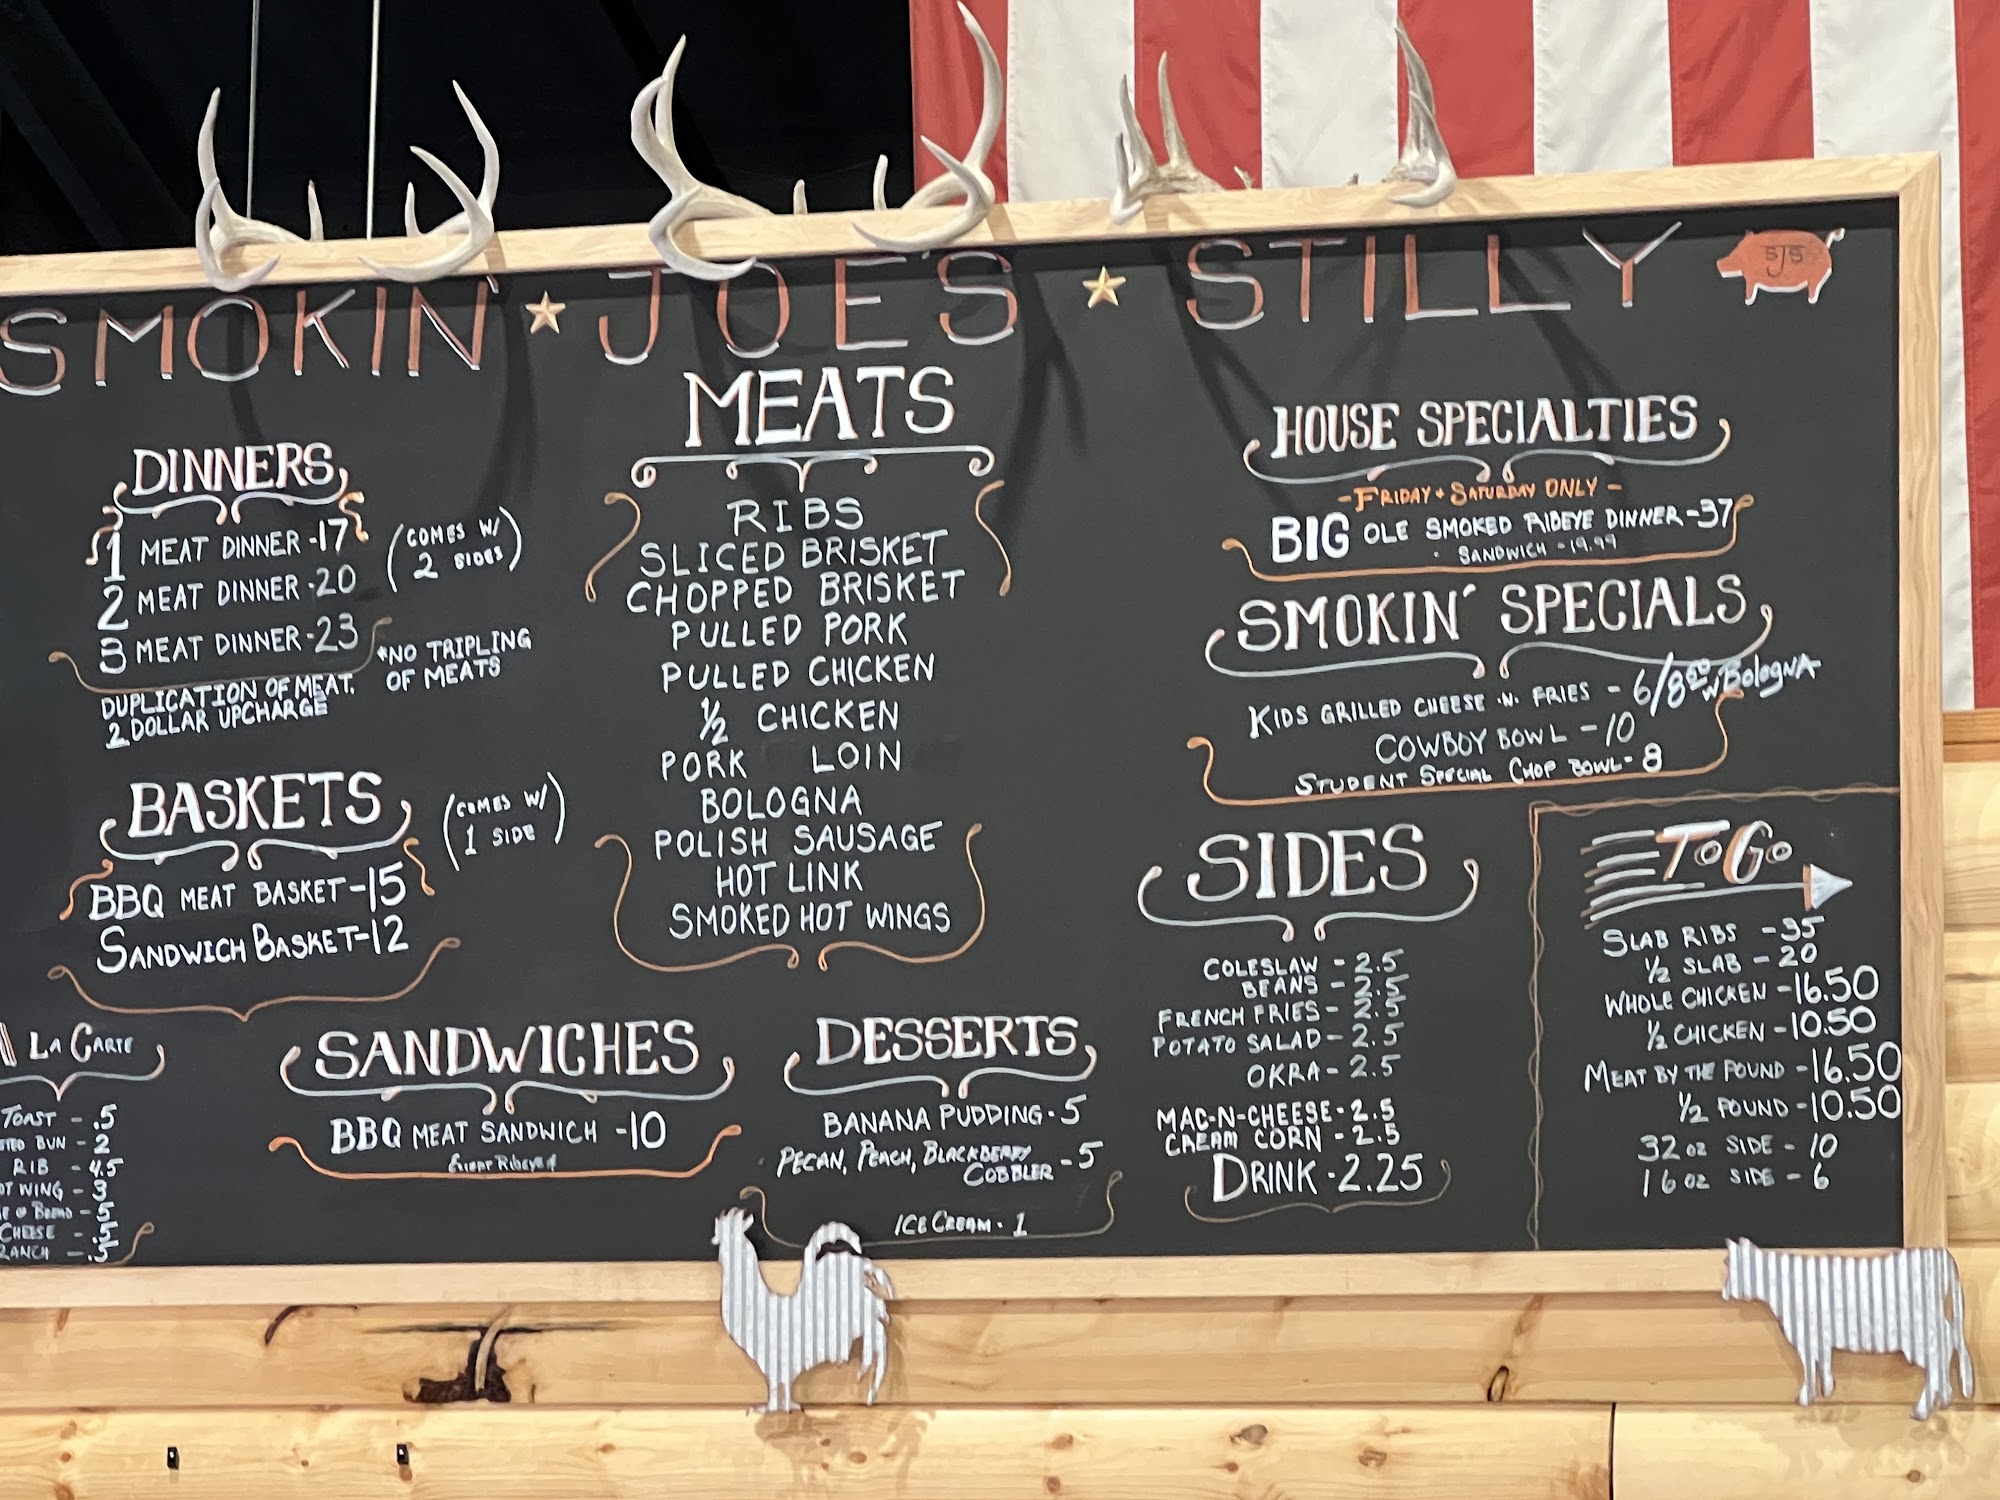 SMOKIN' JOE'S STILLY
SJS
DINNERS
1 MEAT DINNER -17
2 MEAT DINNER -20
3 MEAT DINNER -23
(COMES W/
2 SIDES)
*NO TRIPLING
OF MEATS
DUPLICATION OF MEAT.
2 DOLLAR UPCHARGE
BASKETS
(COMES W/
1 SIDE)
BBQ MEAT BASKET-15
SANDWICH BASKET-12
LA CARTE
TOAST - .5
BUN - 2
RIB - 4.5
WING - 3
- .5
CHEESE - .5
RANCH - .5
SANDWICHES
BBQ MEAT SANDWICH -10
MEATS
RIBS
SLICED BRISKET
CHOPPED BRISKET
PULLED PORK
PULLED CHICKEN
1/2 CHICKEN
PORK LOIN
BOLOGNA
POLISH SAUSAGE
HOT LINK
SMOKED HOT WINGS
DESSERTS
BANANA PUDDING - 5
PECAN, PEACH, BLACKBERRY
COBBLER - 5
ICE CREAM - 1
HOUSE SPECIALTIES
-FRIDAY + SATURDAY ONLY-
BIG OLE SMOKED RIBEYE DINNER-37
SANDWICH -19.99
SMOKIN' SPECIALS
KIDS GRILLED CHEESE .N. FRIES - 6/8.50 w/ BologNA
COWBOY BOWL -10
STUDENT SPECIAL CHOP BOWL- 8
SIDES
COLESLAW - 2.5
BEANS - 2.5
FRENCH FRIES - 2.5
POTATO SALAD - 2.5
OKRA - 2.5
MAC-N-CHEESE - 2.5
CREAM CORN - 2.5
DRINK - 2.25
TO GO
SLAB RIBS -35
1/2 SLAB - 20
WHOLE CHICKEN -16.50
1/2 CHICKEN -10.50
MEAT BY THE POUND -16.50
1/2 POUND -10.50
32 OZ SIDE - 10
16 OZ SIDE - 6